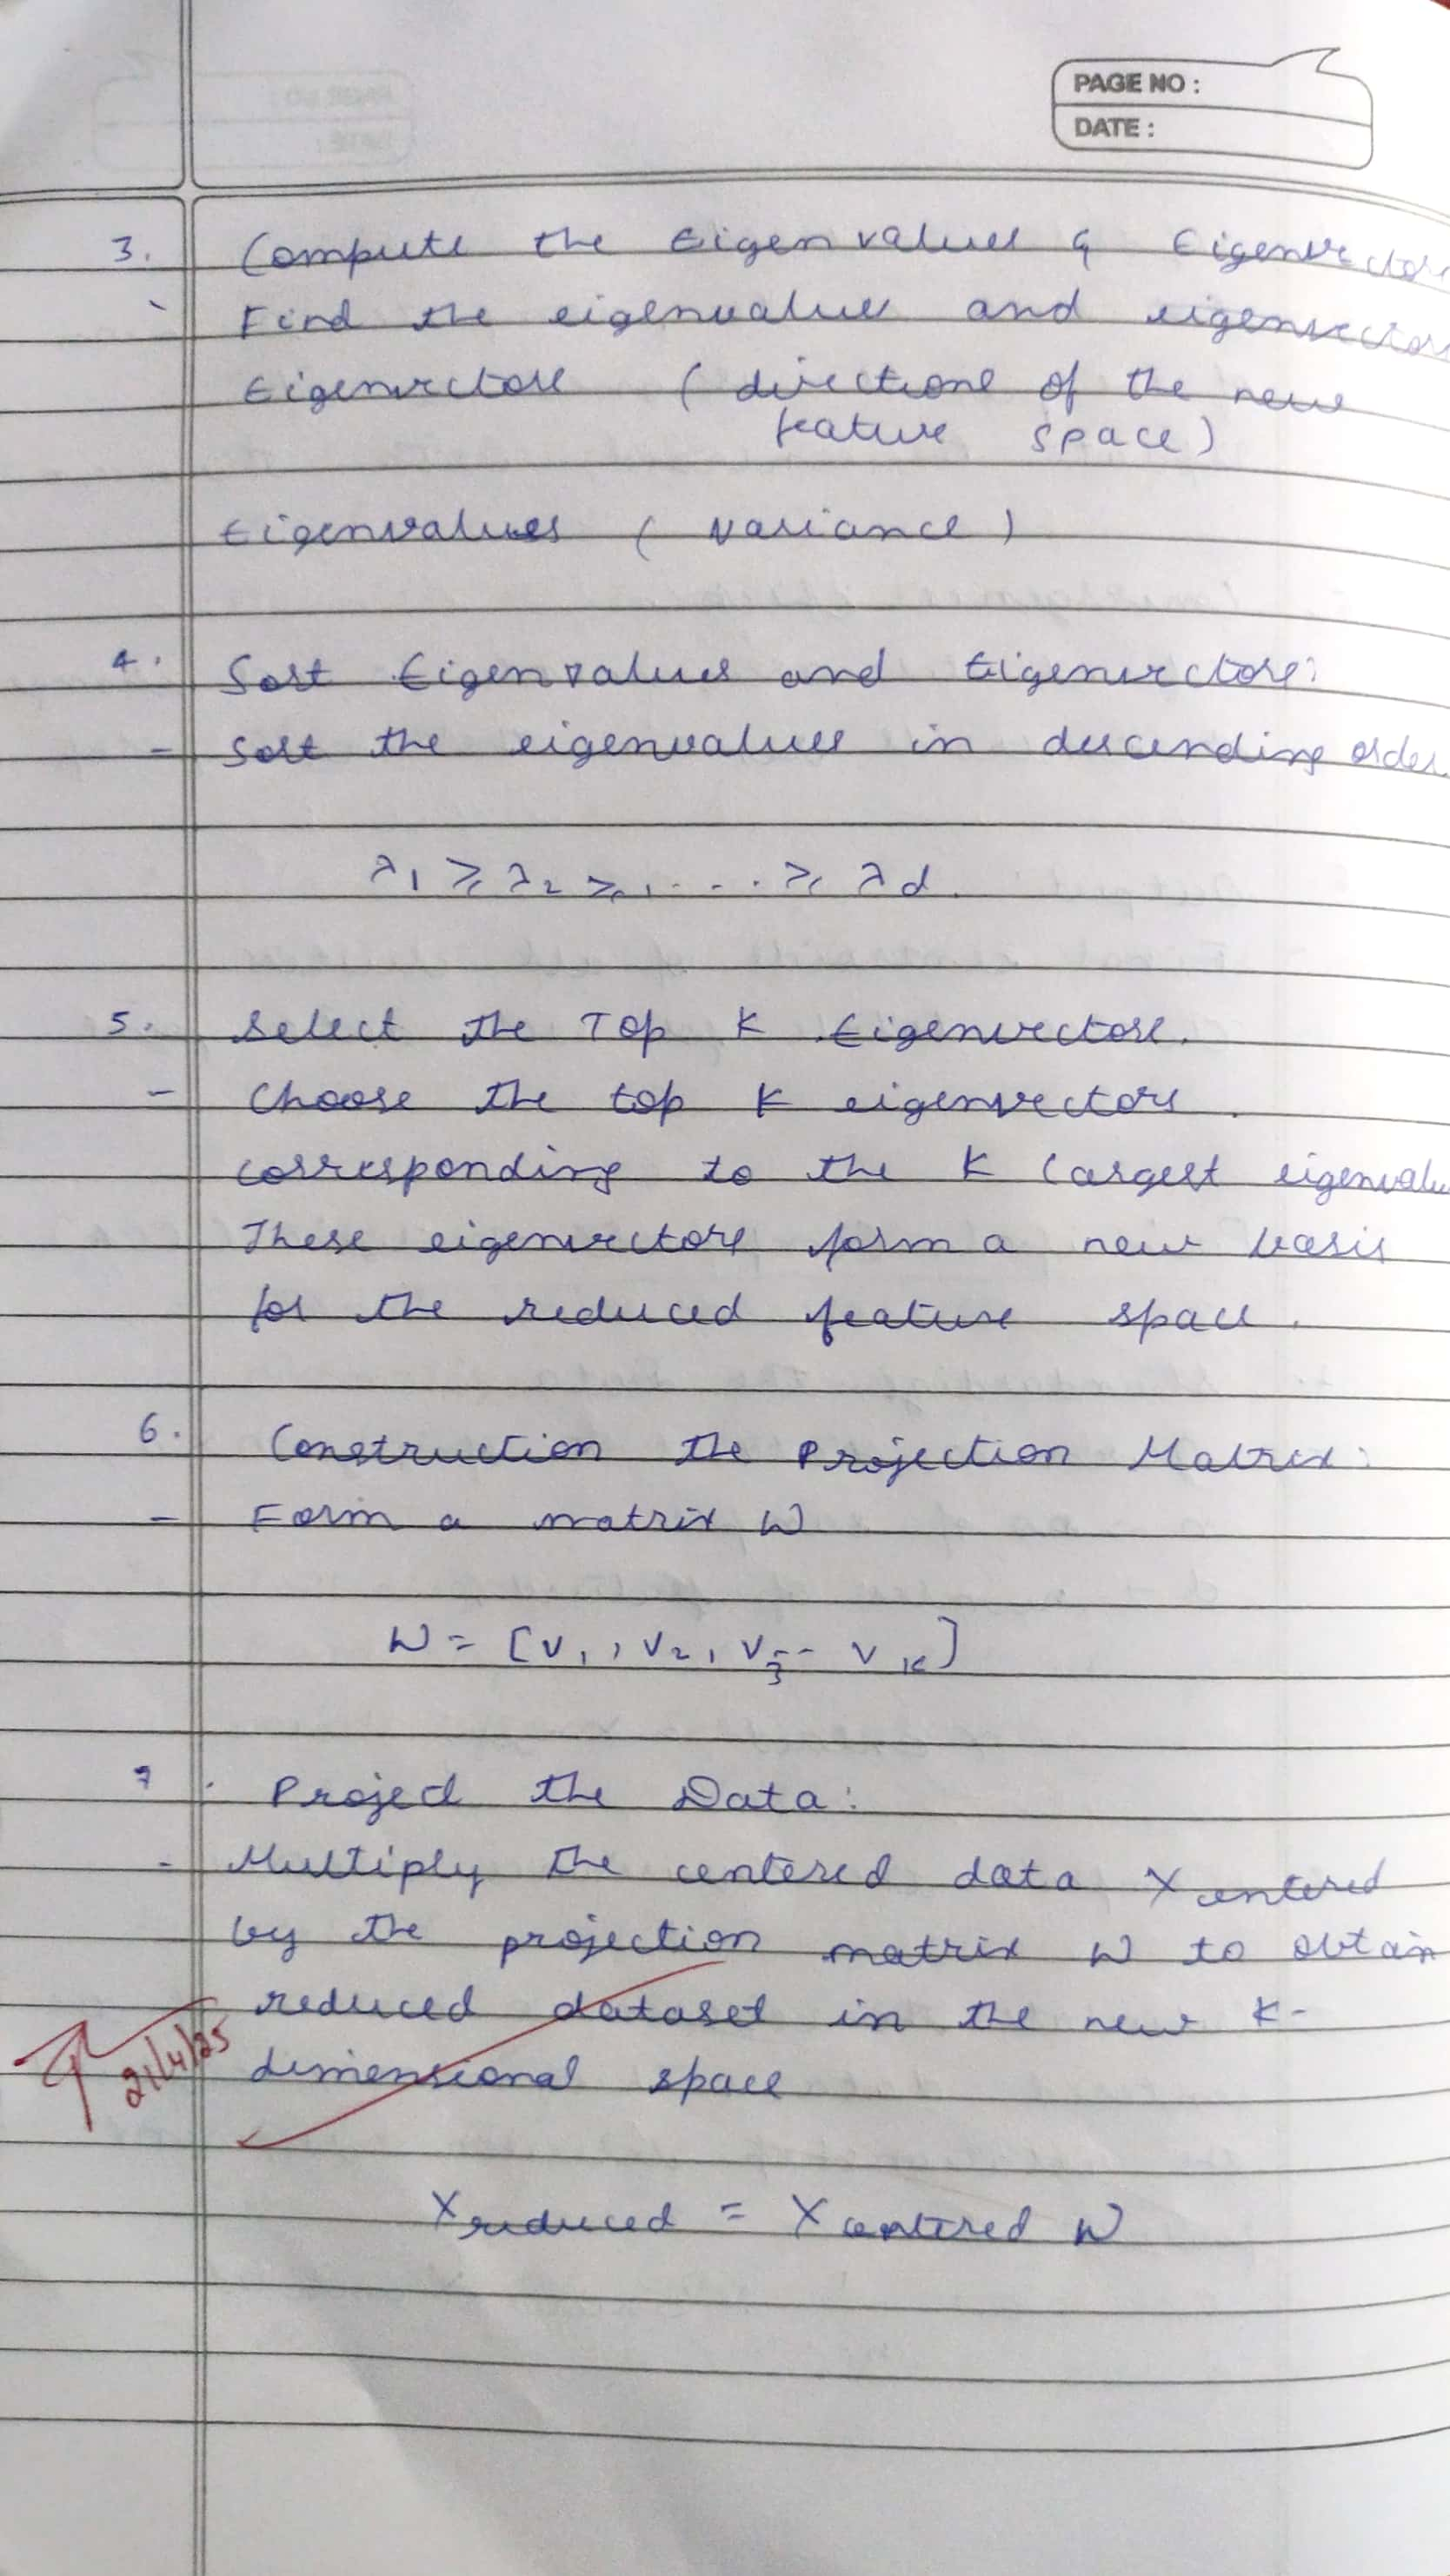 PAGE NO :
DATE :
3. Compute the Eigenvalues & Eigenvectors
Find the eigenvalues and eigenvectors
Eigenvectors ( directions of the new
feature space)
Eigenvalues ( variance )
4. Sort Eigenvalues and Eigenvectors:
- Sort the eigenvalues in descending order.
λ1 ≥ λ2 ≥ . . . . ≥ λd.
5. Select the Top K Eigenvectors.
- Choose the top K eigenvectors.
corresponding to the K largest eigenvalu
These eigenvectors form a new basis
for the reduced feature space.
6. Construction the Projection Matrix:
- Form a matrix W
W = [V1, V2, V3 -- VK]
7. Projed the Data:
- Multiply the centered data X centered
by the projection matrix W to obtain
reduced dataset in the new K-
dimensional space
21/4/25
X reduced = X centered W